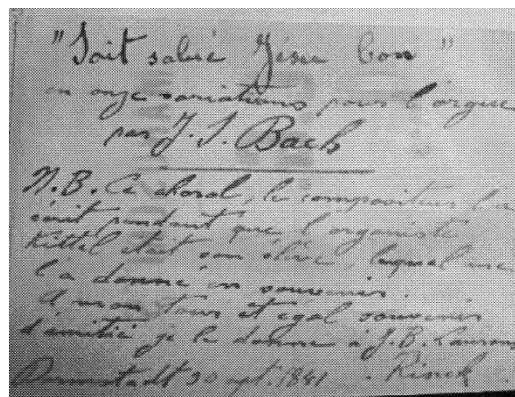 "Soit salué Jésu bon"
en onze variations pour l'orgue
par J. S. Bach
N.B. Ce choral, le compositeur l'a
écrit pendant que l'organiste
Kittel était son élève, lequel me
l'a donné en souvenir.
A mon tour et égal souvenir
d'amitié je le donne à J. B. Laurens
Darmstadt 30 spt. 1841 - Rinck